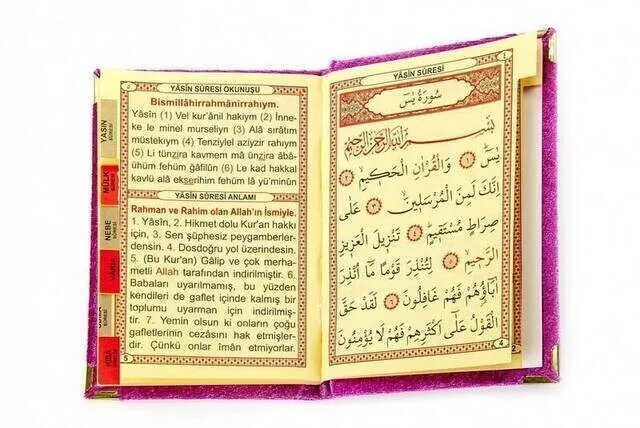 YÂSİN SÛRESİ OKUNUŞU
Bismillâhirrahmânirrahıym.
Yâsîn (1) Vel kur'ânil hakiym (2) İnne-
ke le minel murseliyn (3) Alâ sırâtım
müstekıym (4) Tenziylel aziyzir rahıym
(5) Li tünzira kavmem mâ ünzira âbâ-
ühüm fehüm gâfilûn (6) Le kad hakkal
kavlü alâ ekserihim fehüm lâ yü'minûn
YÂSİN SÛRESİ ANLAMI
Rahman ve Rahim olan Allah'ın İsmiyle.
1. Yâsîn, 2. Hikmet dolu Kur'an hakkı
için, 3. Sen şüphesiz peygamberler-
densin. 4. Dosdoğru yol üzerindesin.
5. (Bu Kur'an) Gâlip ve çok merha-
metli Allah tarafından indirilmiştir. 6.
Babaları uyarılmamış, bu yüzden
kendileri de gaflet içinde kalmış bir
toplumu uyarman için indirilmiş-
tir. 7. Yemin olsun ki onların çoğu
gafletlerinin cezasını hak etmişler-
dir. Çünkü onlar îman etmiyorlar.
5
YASIN
SÛRESİ
MÜLK
NEBE
SÛRESİ
KISA
YÂSİN SÛRESİ
سُورَةُ يٰسٓ
بِسْمِ اللّٰهِ الرَّحْمٰنِ الرَّحِيمِ
يٰسٓ ﴿١﴾ وَالْقُرْاٰنِ الْحَكِيمِ ﴿٢﴾
اِنَّكَ لَمِنَ الْمُرْسَلِينَ ﴿٣﴾ عَلٰى
صِرَاطٍ مُسْتَقِيمٍ ﴿٤﴾ تَنْزِيلَ الْعَزِيزِ
الرَّحِيمِ ﴿٥﴾ لِتُنْذِرَ قَوْمًا مَٓا اُنْذِرَ
اٰبَٓاؤُهُمْ فَهُمْ غَافِلُونَ ﴿٦﴾ لَقَدْ حَقَّ
الْقَوْلُ عَلٰٓى اَكْثَرِهِمْ فَهُمْ لَا يُؤْمِنُونَ
4
2